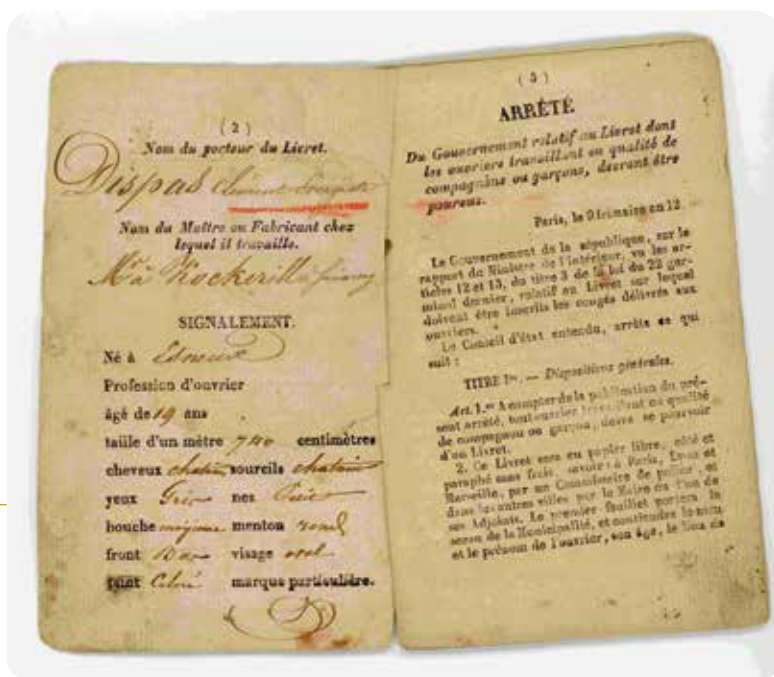 ( 2 )
Nom du porteur du Livret.
Dispas
Nom du Maître ou Fabricant chez
lequel il travaille.
Mr à Kockerill à
SIGNALEMENT.
Né à
Profession d'ouvrier
âgé de 19 ans
taille d'un mètre 740 centimètres
cheveux chatain sourcils chatain
yeux Gris nez
bouche moyenne menton rond
front Bas visage oval
teint Coloré marque particulière.
( 3 )
ARRÊTÉ
Du Gouvernement relatif au Livret dont
les ouvriers travaillant en qualité de
compagnons ou garçons, devront être
pourvus.
Paris, le 9 frimaire an 12
Le Gouvernement de la république, sur le
rapport du Ministre de l'intérieur, vu les ar-
ticles 12 et 13, du titre 3 de la loi du 22 ger-
minal dernier, relatif au Livret sur lequel
doivent être inscrits les congés délivrés aux
ouvriers.
Le Conseil d'état entendu, arrête ce qui
suit :
TITRE Ier. — Dispositions générales.
Art. 1.er A compter de la publication du pré-
sent arrêté, tout ouvrier travaillant en qualité
de compagnon ou garçon, devra se pourvoir
d'un Livret.
2. Ce Livret sera en papier libre, côté et
paraphé sans frais, savoir : à Paris, Lyon et
Marseille, par un Commissaire de police, et
dans les autres villes par le Maire ou l'un de
ses Adjoints. Le premier feuillet portera le
sceau de la Municipalité, et contiendra le nom
et le prénom de l'ouvrier, son âge, le lieu de